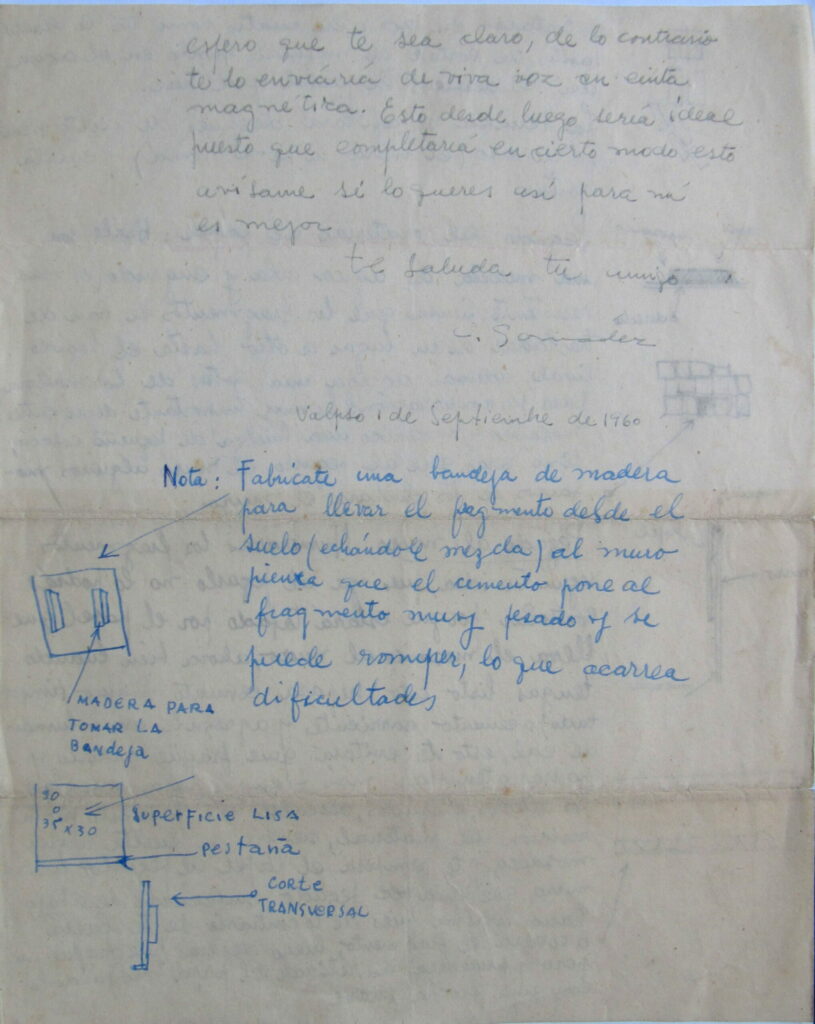 espero que te sea claro, de lo contrario
te lo enviaría de viva voz en cinta
magnética. Esto desde luego sería ideal
puesto que completaría en cierto modo esto
avísame si lo queres así para mí
es mejor
te saluda tu amigo
Valpso 1 de Septiembre de 1960
Nota: Fabrícate una bandeja de madera
para llevar el fragmento desde el
suelo (echándole mezcla) al muro
pienza que el cimento pone al
fragmento muy pesado y se
puede romper, lo que acarrea
dificultades
MADERA PARA
TOMAR LA
Bandeja
30
o
35 x 30
Superficie LISA
pestaña
CORTE
TRANSVERSAL